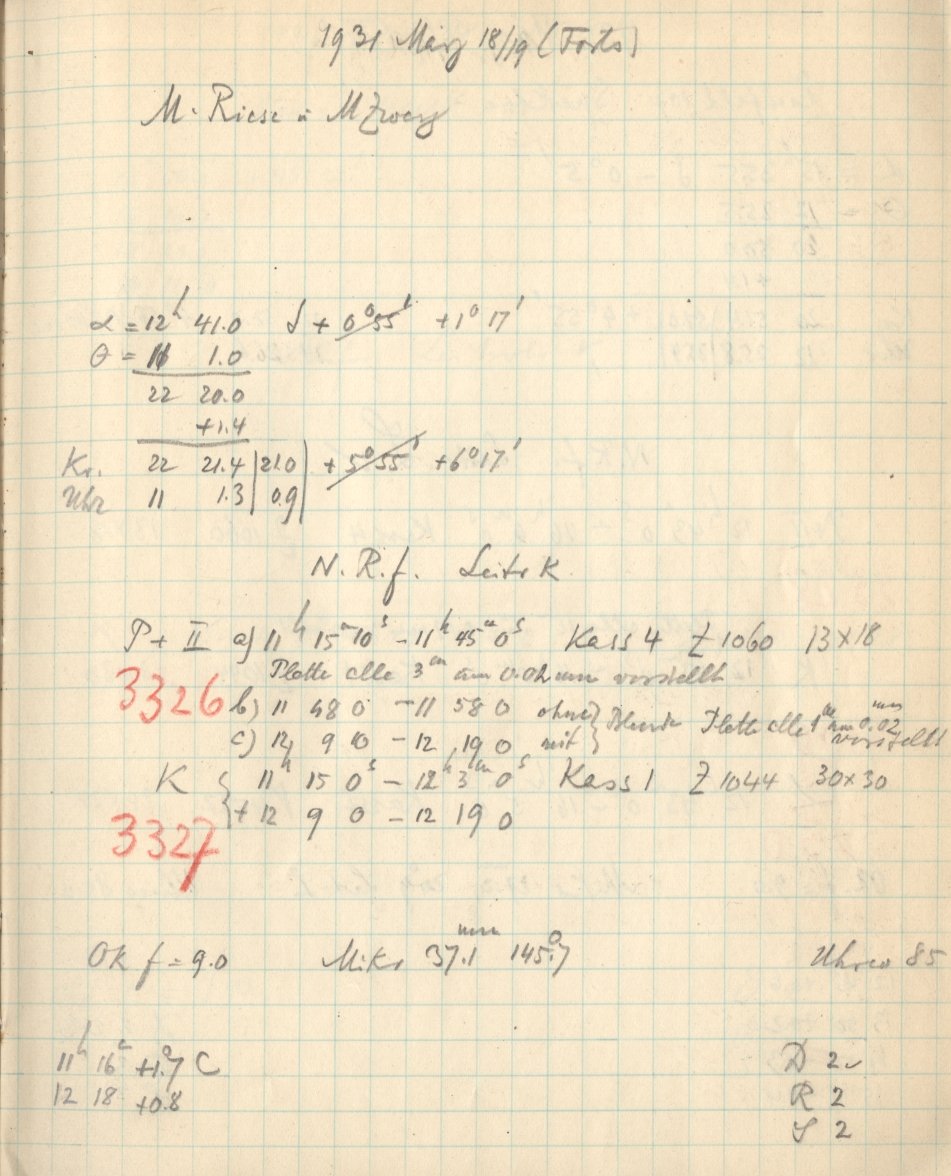 1931 März 18/19 (Forts)
M. Riese u MZwerg
α = 12h 41.0 δ + 0°55' +1°17'
θ = 11 1.0
22 20.0
+1.4
Kr. 22 21.4 |21.0| + 5°55' +6°17'
Uhr 11 1.3 |0.9|
N. R. f. Leitr K
P + II a) 11h 15m 10s - 11h 45m 0s Kass 4 Z 1060 13x18
Platte alle 3m um 0.02 mm verstellt
3326 b) 11 48 0 - 11 58 0 ohne } Blende Platte alle 1m um 0.02 mm
c) 12 9 10 - 12 19 0 mit } verstellt
K { 11h 15 0s - 12h 3m 0s Kass 1 Z 1044 30x30
{ + 12 9 0 - 12 19 0
3327
Ok f = 9.0 Mikr 37.1 mm 145.°7 Uhrw 85
11h 16m +1.°7 C D 2
12 18 +0.8 R 2
S 2